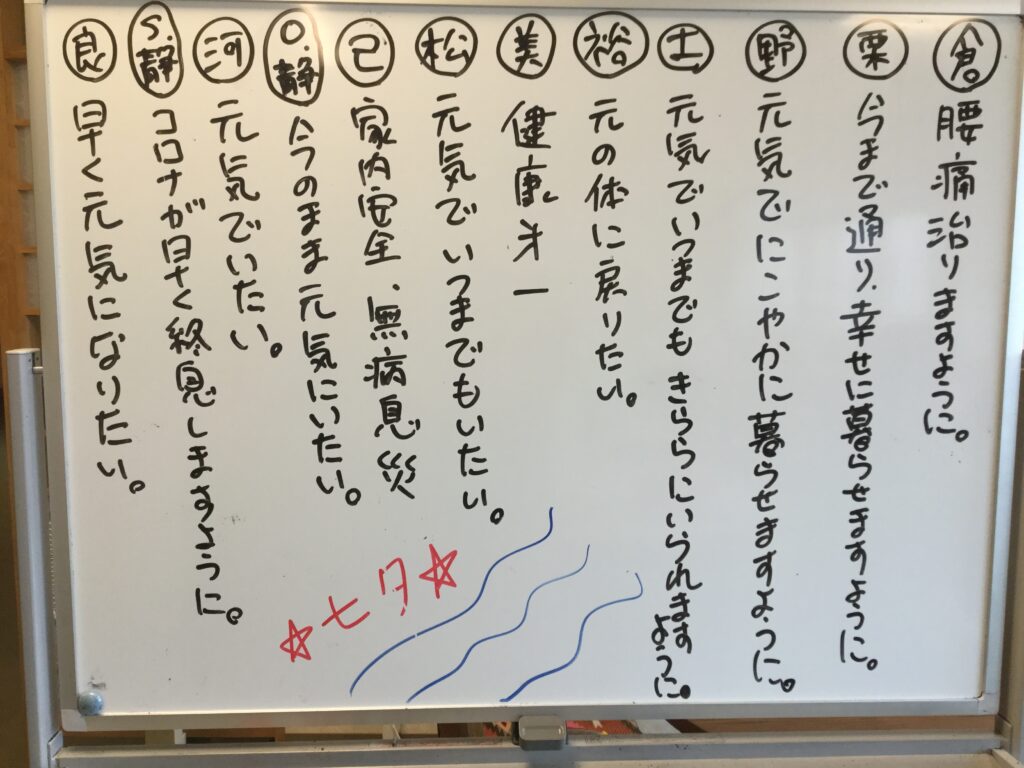 倉 腰痛治りますように。
栗 今まで通り、幸せに暮らせますように。
野 元気でにこやかに暮らせますように。
士 元気でいつまでも きららにいられますように。
裕 元の体に戻りたい。
美 健康才一
松 元気でいつまでもいたい。
己 家内安全、無病息災
O.静 今のまま元気にいたい。
河 元気でいたい。
S.静 コロナが早く終息しますように。
良 早く元気になりたい。
☆七夕☆